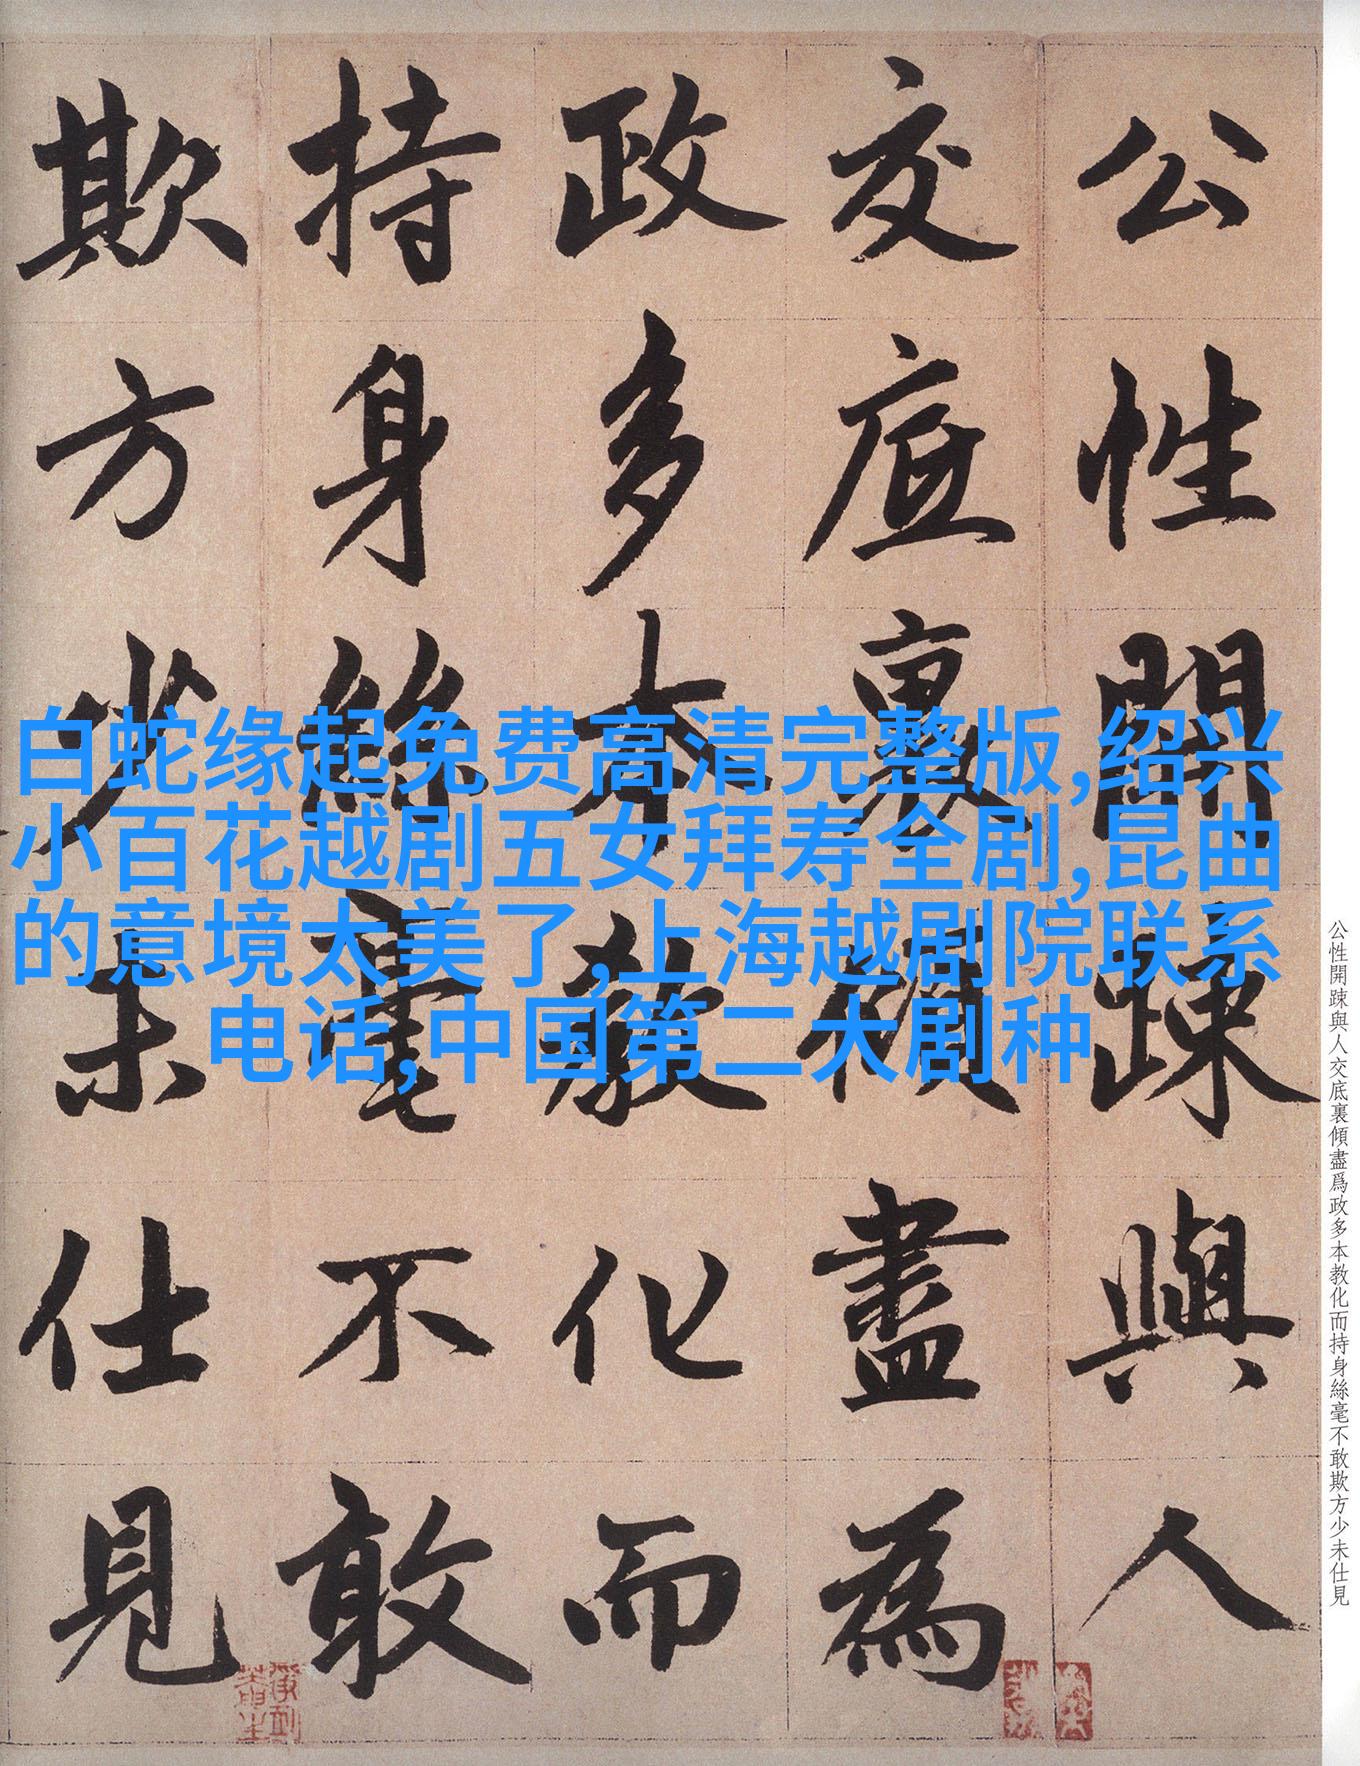 公性開踈與人
交底裏傾盡為
政多本教化而
持身絲毫不敢
欺方少未仕見
白蛇缘起免费高清完整版,绍兴
小百花越剧五女拜寿全剧,昆曲
的意境太美了,上海越剧院联系
电话,中国第二大剧种
公性開踈與人交底裏傾盡爲政多本教化而持身絲毫不敢欺方少未仕見